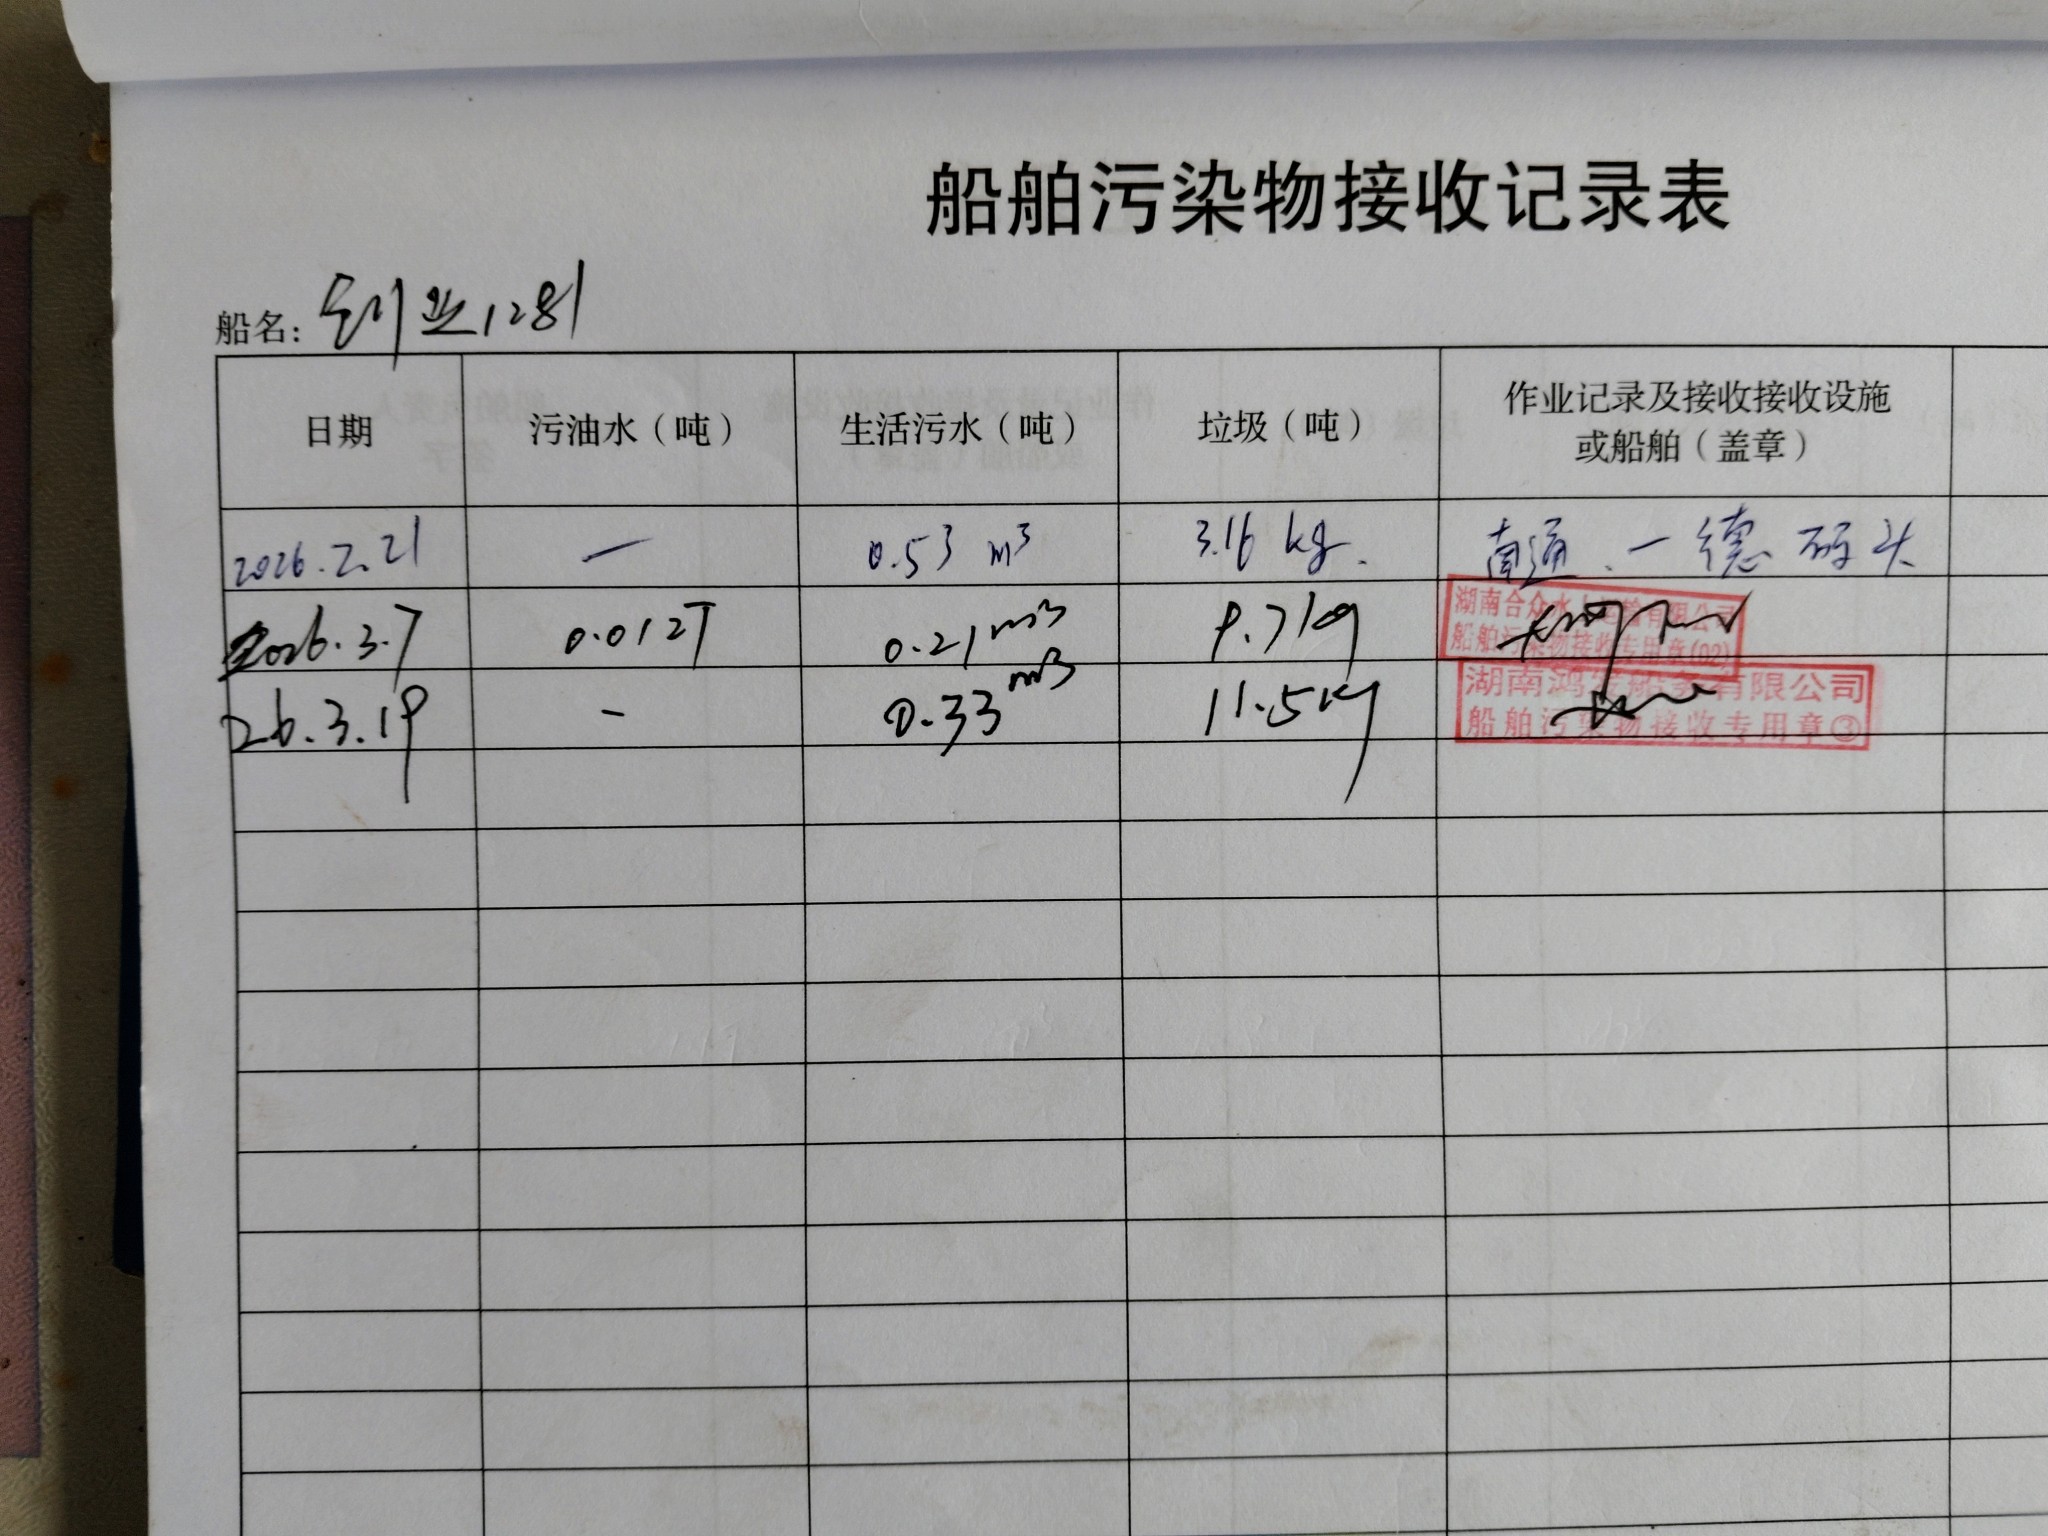 船舶污染物接收记录表
船名: 创业1281
日期 污油水（吨） 生活污水（吨） 垃圾（吨） 作业记录及接收接收设施
或船舶（盖章）
2026.2.21 — 0.53 m³ 3.16 kg. 南通.一德码头
2026.3.7 0.012T 0.21m³ 9.7kg
湖南合众水上运输有限公司
船舶污染物接收专用章(02)
26.3.19 - 0.33m³ 11.5kg
湖南鸿发船务有限公司
船舶污染物接收专用章③